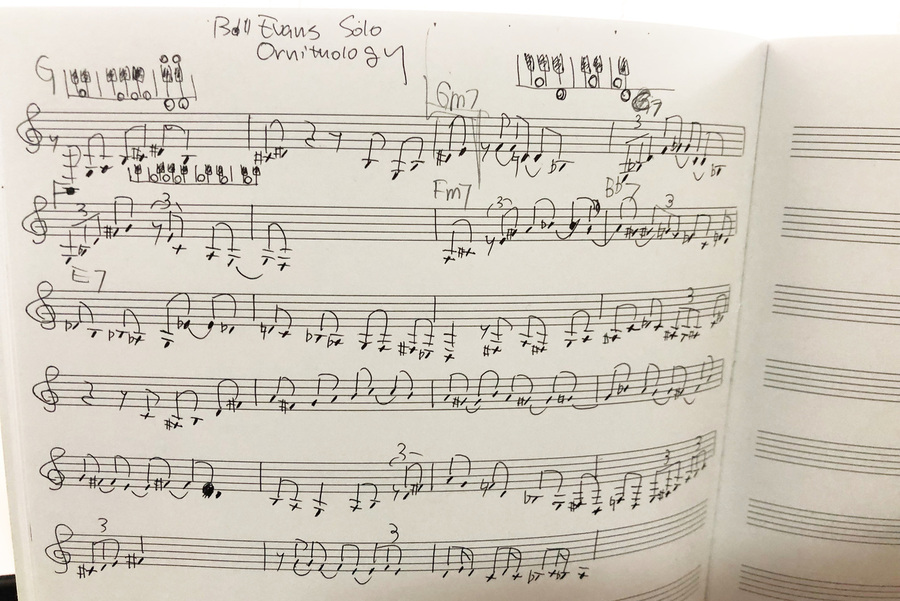 Bill Evans Solo
Ornithology
G
Gm7
G7
3
3
3
Fm7
3
Bb7
3
E7
3
3
3
3
3
3